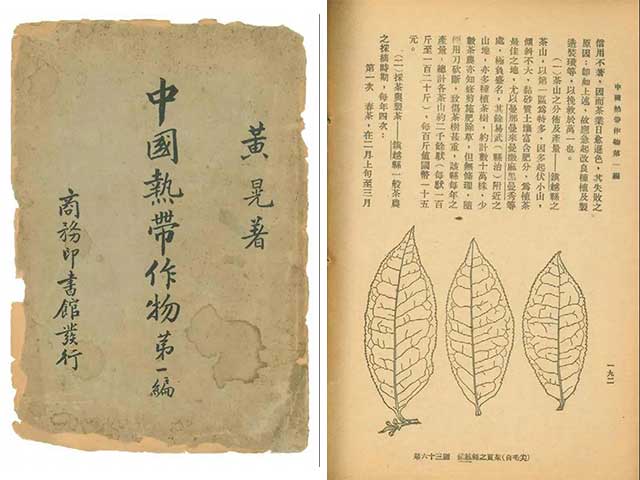 黃晃著
中國熱帶作物第一編
商務印書館發行
中國熱帶作物第一編
一九二
信用不著，因而茶業日愈退色，其失敗之
原因：卽如上述，故應急起改良種植及製
造裝璜等，以挽救於萬一也。
(一)茶山之分佈及產量——鎮越縣之
茶山，以第一區為特多，因多起伏小山，
傾斜不大，黏砂質土壤富含肥分，為植茶
最佳之地，尤以曼那曼曼麻黑曼秀等
處，極負盛名，其餘易武(縣治)附近之
山地，亦多種植茶樹，約計數十萬株，少
數茶農亦知修剪施肥除草，但無條理，隨
便用刀砍斷，致傷茶樹甚重，該縣每年之
產量，總計各茶山約二千餘駄(每駄一百
斤至一百二十斤)，每百斤值國幣一十五
元。
(二)採茶與製茶——鎮越縣一般茶農
之採摘時期，每年四次：
第一次　春茶，在二月上旬至三月
第六十三圖　鎮越縣之夏茶(白毛尖)